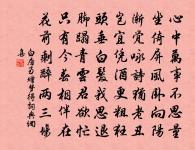 心中萬事不思量
坐倚屏風卧向陽
漸覺詠詩猶老醜
豈宜憑酒更粗狂
頭垂白髮我思退
脚蹋青雲君欲忙
只有今春相伴在
花前剩醉兩三場
白居易贈夢得詞典網